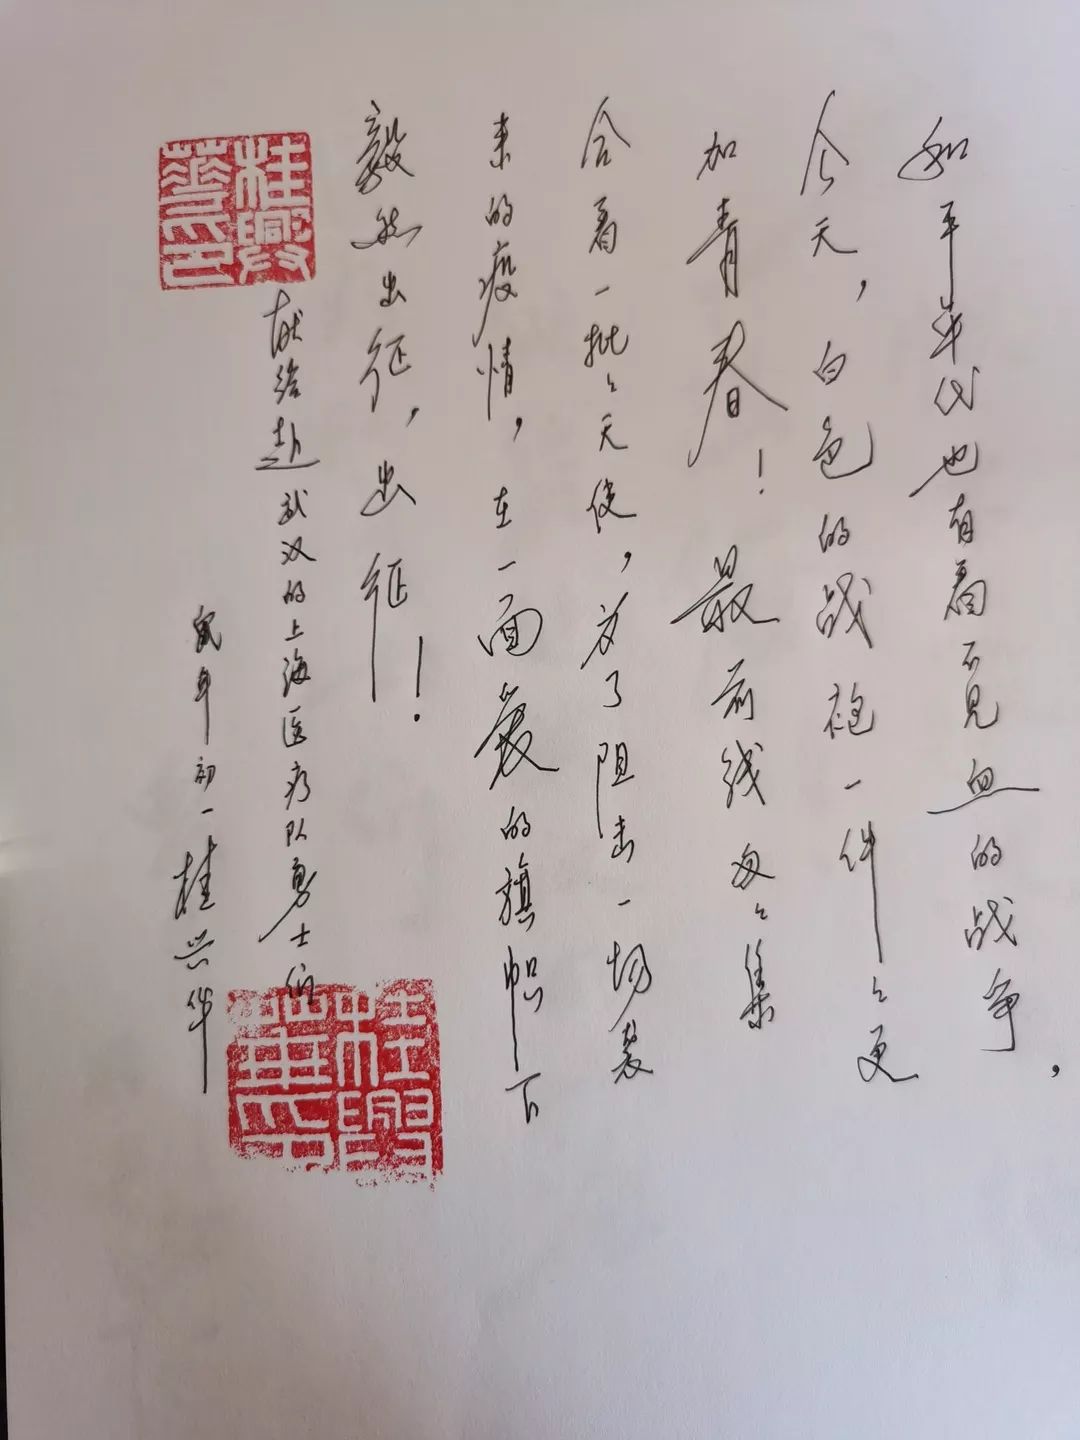 和平年代也有看不见血的战争，
今天，白色的战袍一件々更
加青春！最前线匆々集
合着一批々天使，为了阻击一场袭
来的疫情，在一面的旗帜下
毅然出征，出征！
献给赴武汉的上海医疗队勇士们
鼠年初一桂兴华
桂興華印
桂興華印